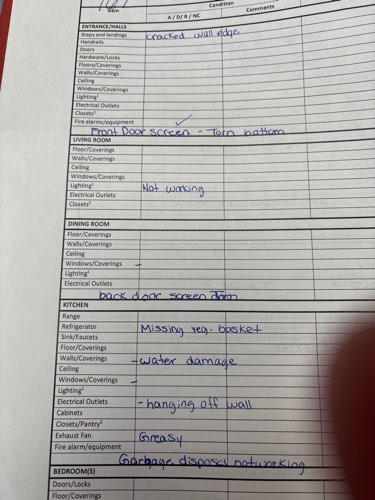 Item
Condition
A / D / R / NC
Comments
ENTRANCE/HALLS
Steps and landings cracked wall edge
Handrails
Doors
Hardware/Locks
Floors/Coverings
Walls/Coverings
Ceiling
Windows/Coverings
Lighting¹
Electrical Outlets
Closets²
Fire alarms/equipment ✓
Front Door screen - Torn bottom
LIVING ROOM
Floor/Coverings
Walls/Coverings
Ceiling
Windows/Coverings
Lighting¹ Not working
Electrical Outlets
Closets²
DINING ROOM
Floor/Coverings
Walls/Coverings
Ceiling
Windows/Coverings -
Lighting¹
Electrical Outlets
back door screen Torn
KITCHEN
Range
Refrigerator Missing veg. basket
Sink/Faucets
Floor/Coverings
Walls/Coverings - water damage
Ceiling
Windows/Coverings -
Lighting²
Electrical Outlets - hanging off wall
Cabinets
Closets/Pantry²
Exhaust Fan Greasy
Fire alarm/equipment
Garbage disposal not working
BEDROOM(S)
Doors/Locks
Floor/Coverings